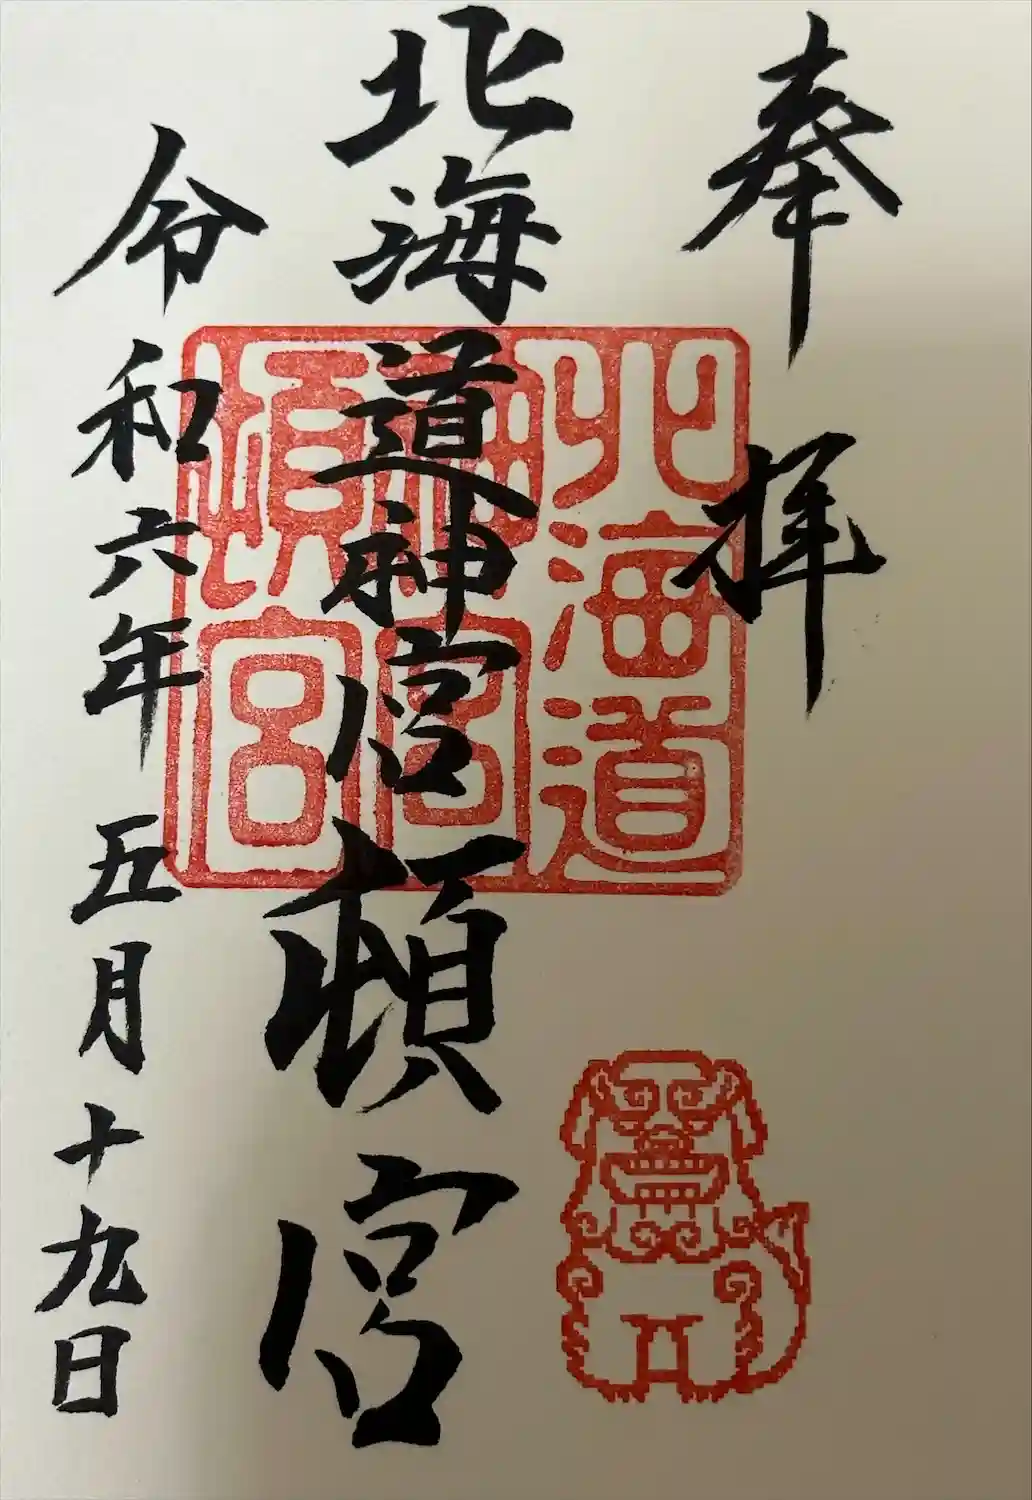 奉拝
北海道神宮頓宮
北海道
神宮
頓宮
令和六年五月十九日